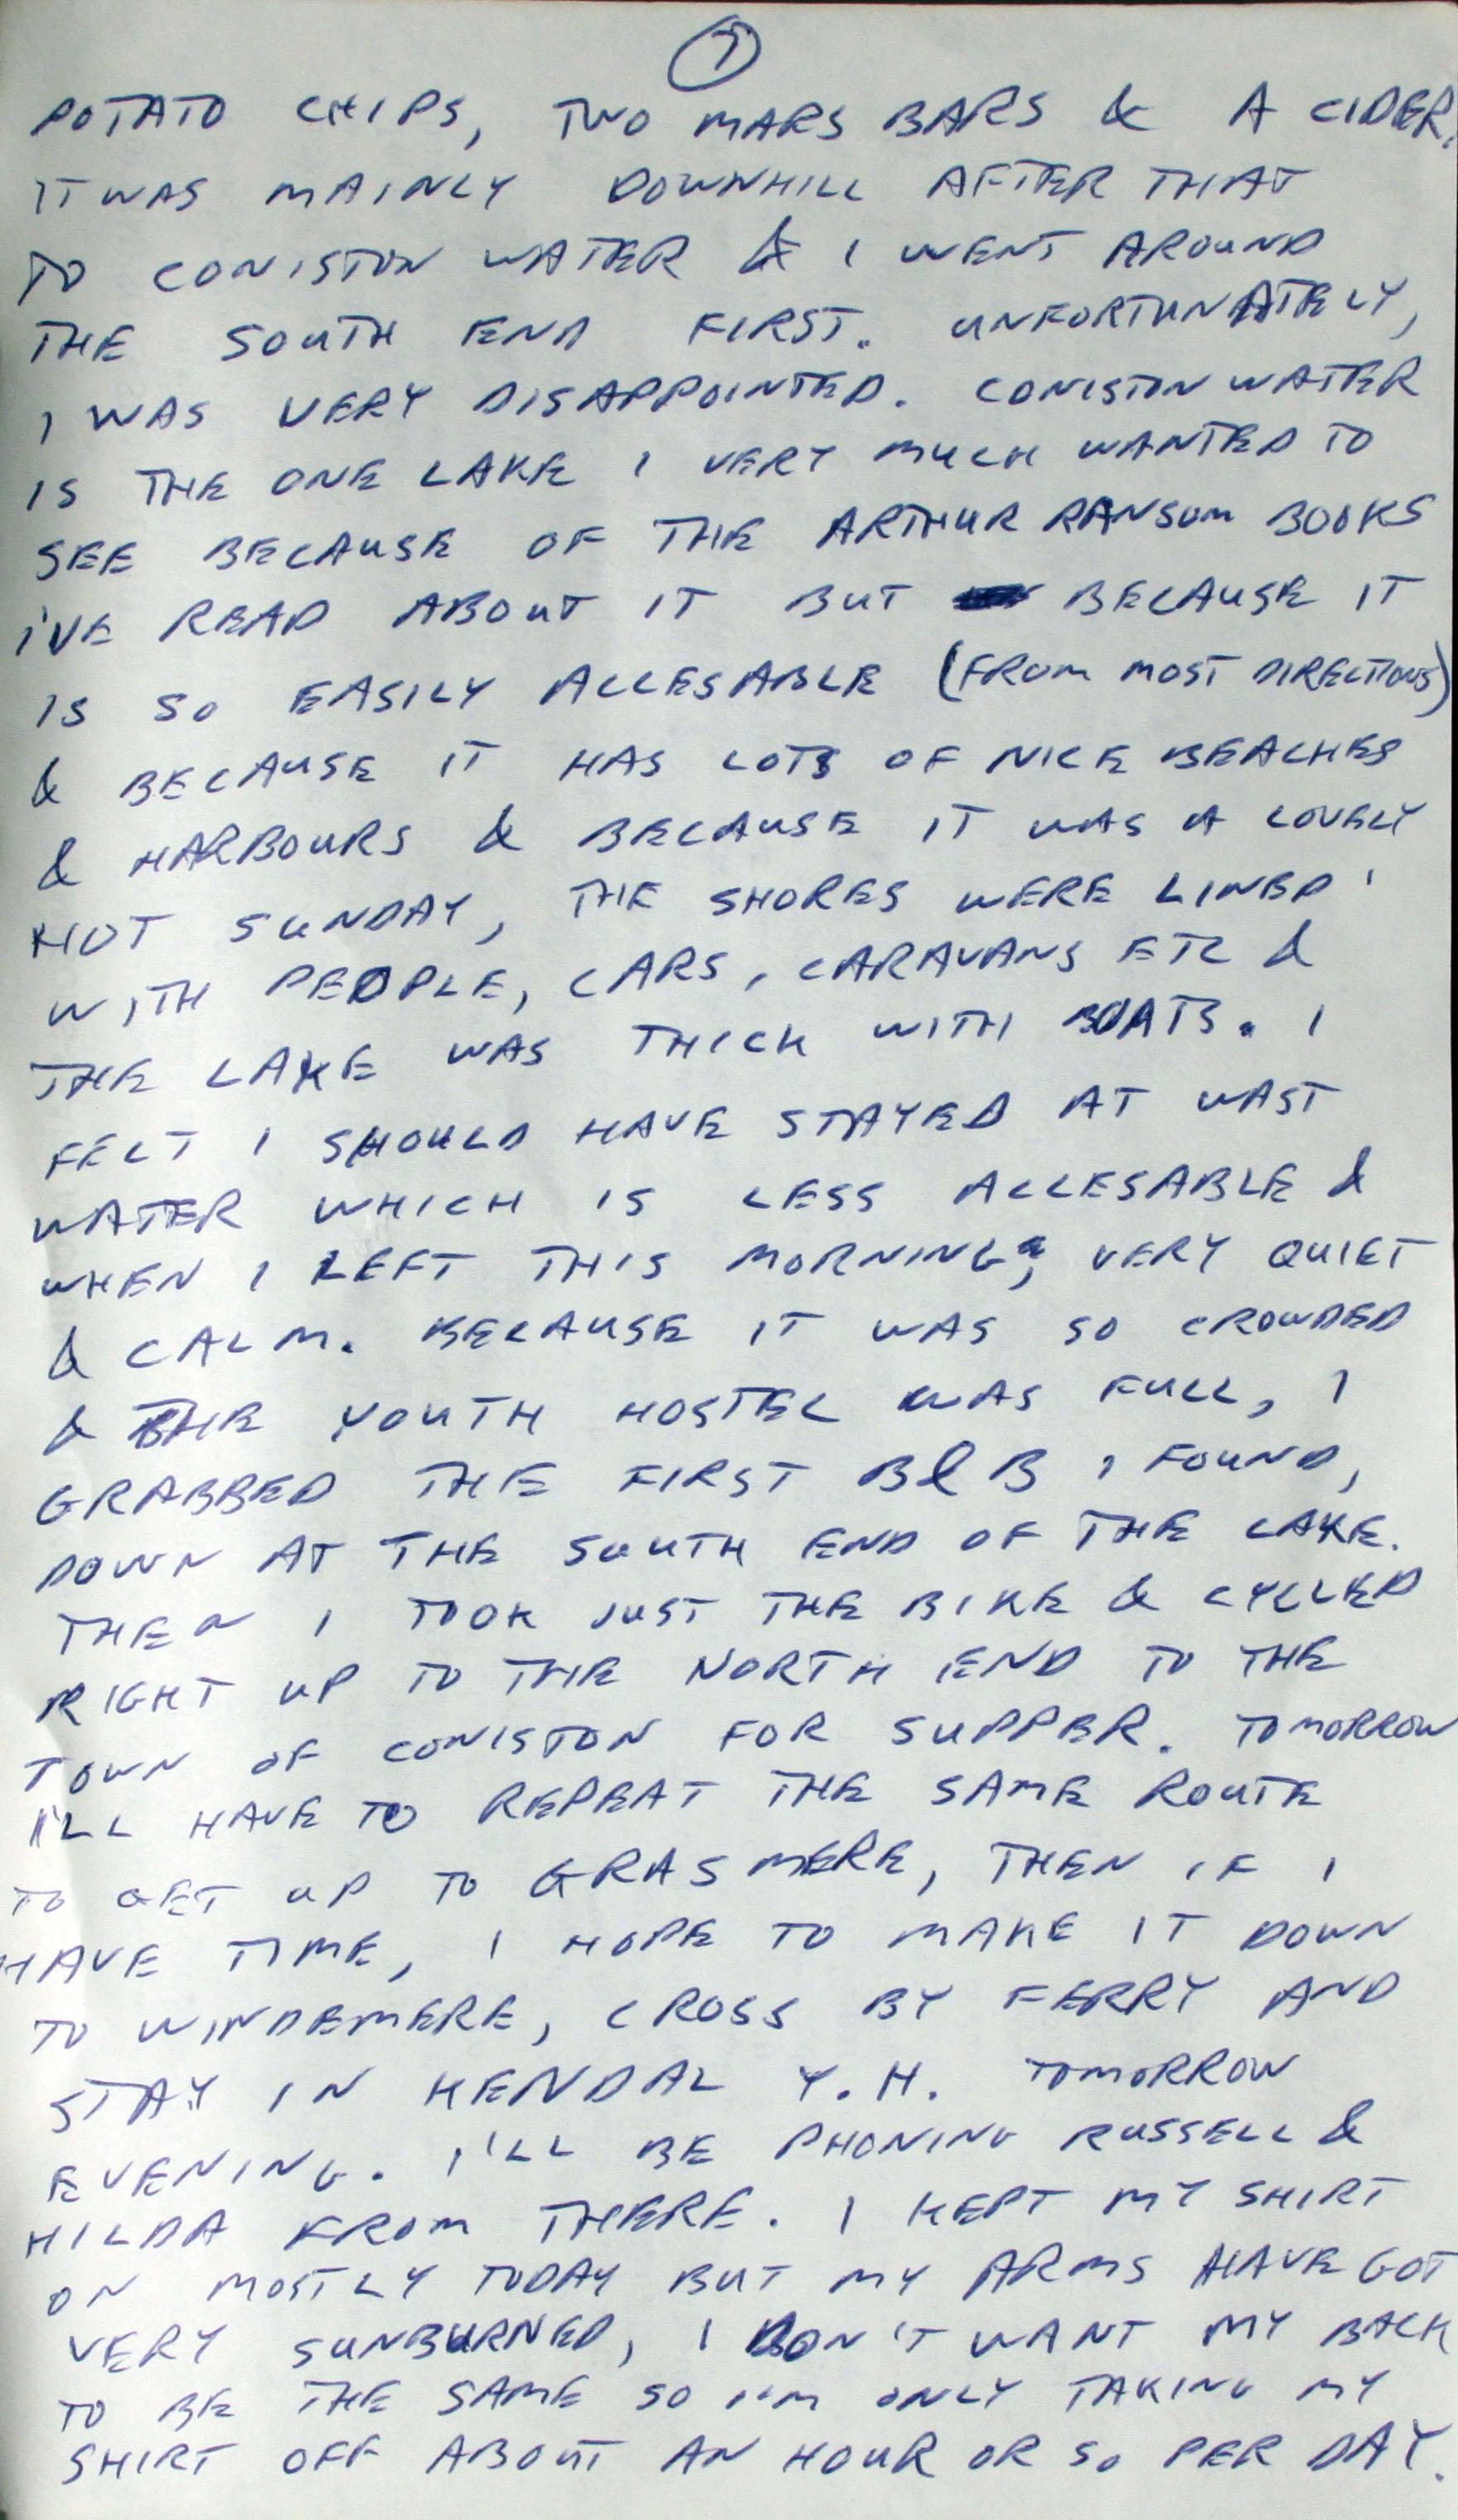 7
POTATO CHIPS, TWO MARS BARS & A CIDER.
IT WAS MAINLY DOWNHILL AFTER THAT
TO CONISTON WATER & I WENT AROUND
THE SOUTH END FIRST. UNFORTUNATELY,
I WAS VERY DISAPPOINTED. CONISTON WATER
IS THE ONE LAKE I VERY MUCH WANTED TO
SEE BECAUSE OF THE ARTHUR RANSOM BOOKS
I'VE READ ABOUT IT BUT BECAUSE IT
IS SO EASILY ACCESABLE (FROM MOST DIRECTIONS)
& BECAUSE IT HAS LOTS OF NICE BEACHES
& HARBOURS & BECAUSE IT WAS A LOVELY
HOT SUNDAY, THE SHORES WERE LINED
WITH PEOPLE, CARS, CARAVANS ETC &
THE LAKE WAS THICK WITH BOATS. I
FELT I SHOULD HAVE STAYED AT WAST
WATER WHICH IS LESS ACCESABLE &
WHEN I LEFT THIS MORNING, VERY QUIET
& CALM. BECAUSE IT WAS SO CROWDED
& THE YOUTH HOSTEL WAS FULL, I
GRABBED THE FIRST B&B I FOUND,
DOWN AT THE SOUTH END OF THE LAKE.
THEN I TOOK JUST THE BIKE & CYCLED
RIGHT UP TO THE NORTH END TO THE
TOWN OF CONISTON FOR SUPPER. TOMORROW
I'LL HAVE TO REPEAT THE SAME ROUTE
TO GET UP TO GRASMERE, THEN IF I
HAVE TIME, I HOPE TO MAKE IT DOWN
TO WINDEMERE, CROSS BY FERRY AND
STAY IN KENDAL Y.H. TOMORROW
EVENING. I'LL BE PHONING RUSSELL &
HILDA FROM THERE. I KEPT MY SHIRT
ON MOSTLY TODAY BUT MY ARMS HAVE GOT
VERY SUNBURNED, I DON'T WANT MY BACK
TO BE THE SAME SO I'M ONLY TAKING MY
SHIRT OFF ABOUT AN HOUR OR SO PER DAY.